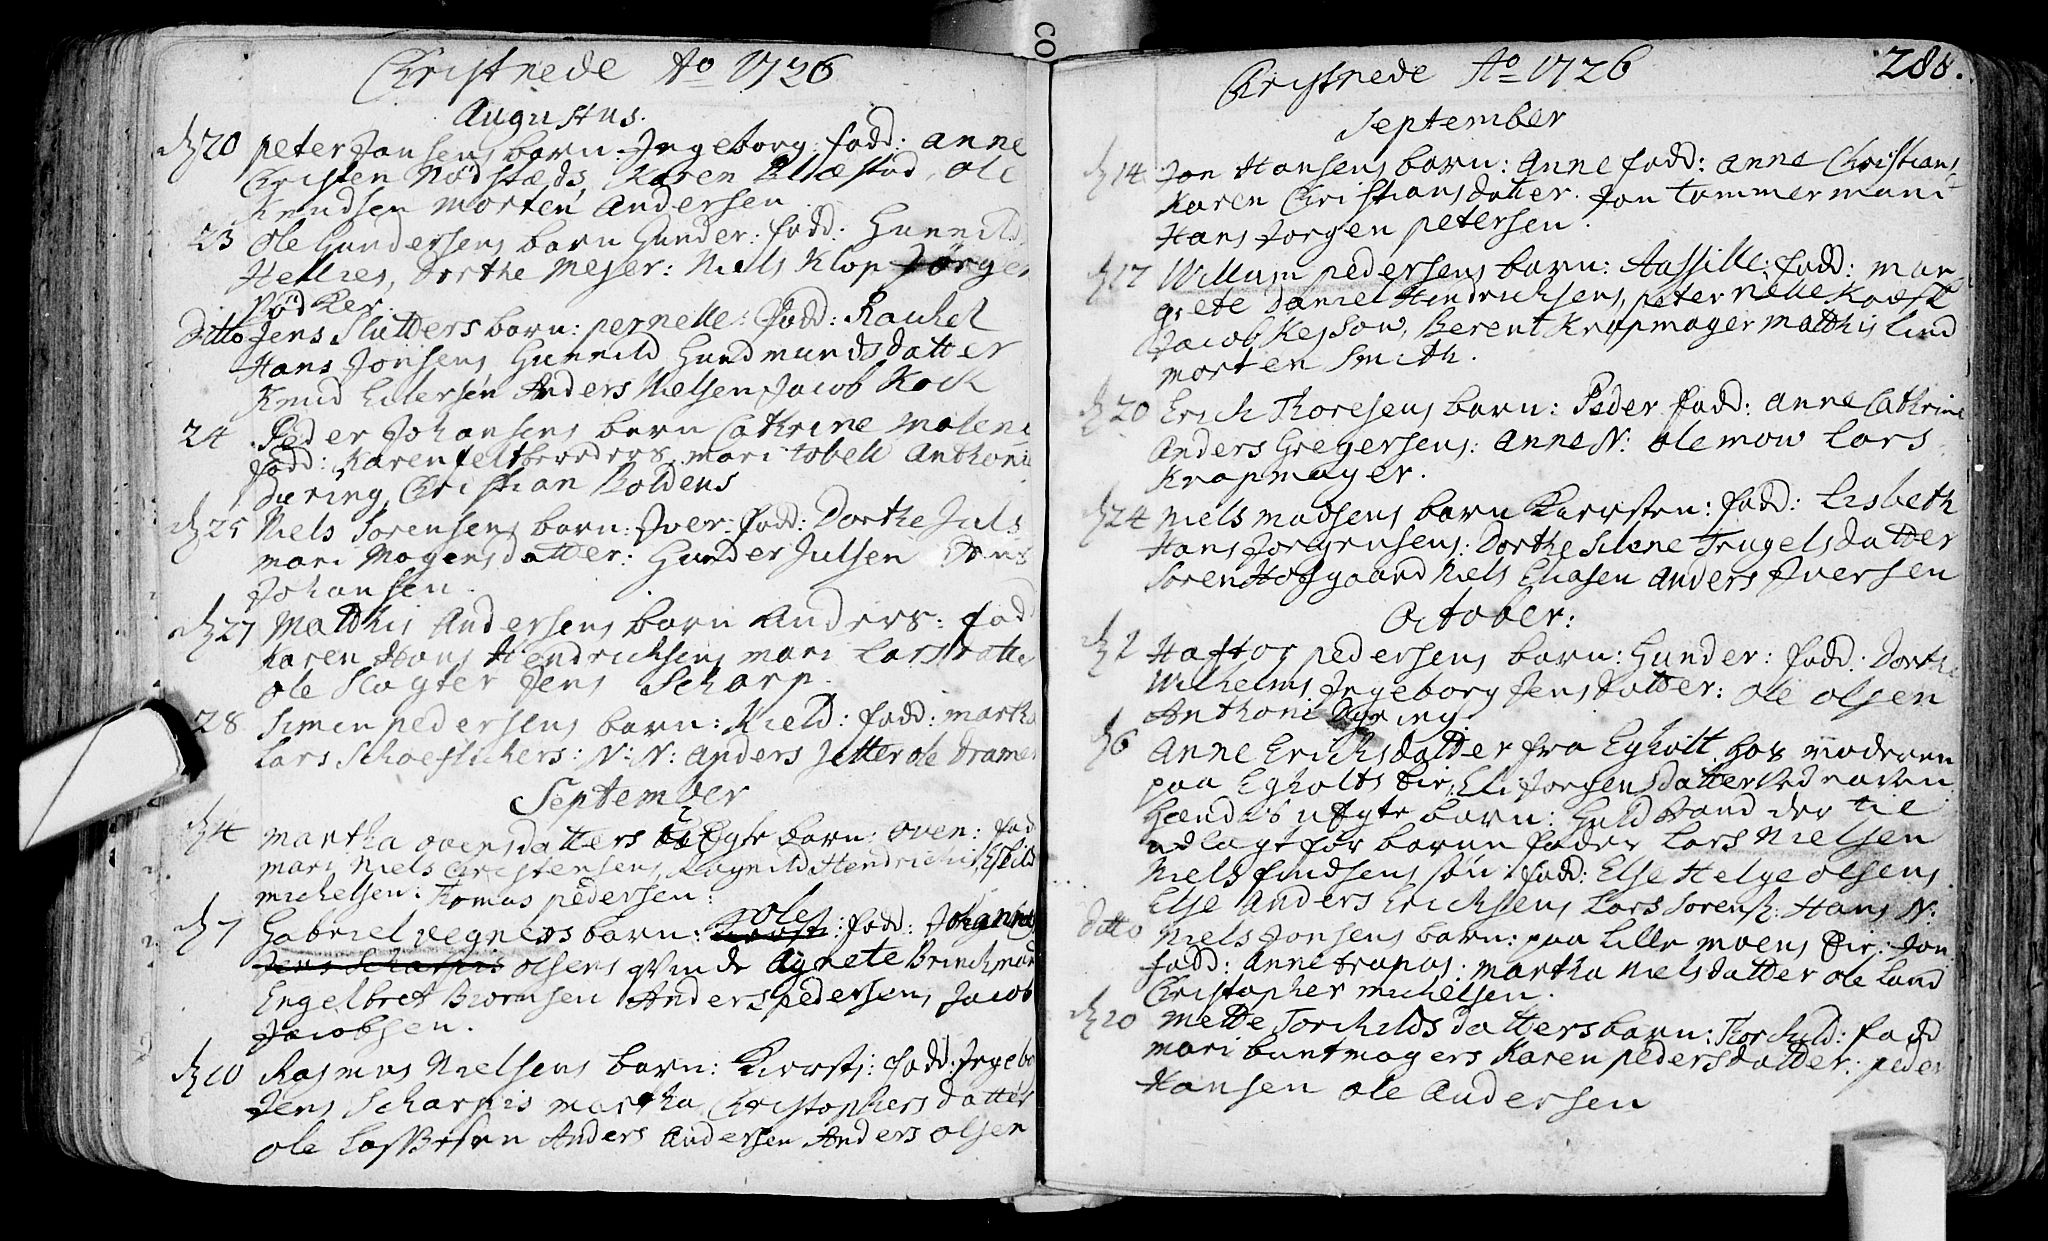 Christnede Ao 1726
Augustus.
d 20 peter Jansens barn: Ingeborg: fadd: anne
Christen Nödstæds, Karen Blæstad, ole
Knudsen Morten Andersen
23 Ole Gundersens barn Gunder: fadd: Gunnild
Hellies, Dorthe Mejer: Niels Klop Jörgen
Bödker
Ditto Jens Slutters barn: pernelle: fadd: Rachel
Hans Jonsens Gunnild Gundmundsdatter
Knud Eilersen Anders Nielsen Jacob Kock
24 Peder Johansens barn Cathrine Malene
fadd: Karen feltbereders, mari tobell Anthoni
During Christian Boldens
d 25 Niels Sörensens barn: Iver: fadd: Dorthe Juls
mari Mogensdatter: Gunder Julsen
Johansen.
d 27 Matthis Andersens barn Anders: fadd
Karen Hans Hendrichsens mari Lars
ole Slagter Jens Scharp.
28 Simen pedersens barn: Kield: fadd: martha
Lars: N: N: Anders Jetter ole Dramen
September
d 4 martha ovensdatters uægte barn: oven: fad
mari Niels Christensens, Ragnild Hendrichs, Eskild
michelsen: Thomas pedersen:
d 7 Gabriel vegners barn: ole: fadd: Johannes
Jens Scharpis olsens qvinde Agnete Brinchman
Engelbret Biörnsen Anders pedersen, Jacob
Jacobsen.
d 10 Rasmus Nielsens barn: Kiersti: fadd: Ingebor
Jens Scharpis martha Christophersdatter
ole Lassesen Anders Andersen Anders olsen
288.
Christnede Ao 1726
September
d 14 Jon Hansens barn: Anne fadd: anne Christians,
Karen Christiansdatter. Jon tammermand
Hans Jorgen petersen.
d 17 Willum pedersens barn: Aassille: fadd: mar-
grete Daniel Hendrichsens, peternelle Koefd
Jacob Kessow, Berent Knapmager Matthis Lind
morten Smith.
d 20 Erich Thoresens barn: Peder fadd: anne Cathrine
Anders Gregersens: Anne N: ole mow Lars
Knapmager.
d 24 Niels madsens barn Kiersten: fadd: Lisbeth
Hans Jorgensens: Dorthe Silene Trugelsdatter
Soren Hofgaard Niels Eliasen Anders Iversen
October:
d 2 Haftor pedersens barn: Gunder: fadd: Dorthe
Wilhelms, Ingeborg Jensdatter: ole olsen
Anthoni Dyring
d 6 Anne Erichsdatter fra Egholt, hos moderen
paa Egholts Eie, Eli Jorgensdatter ved navn
Hendes uægte barn: Guldbrand der til
udlagt for barne fader Lars Nielsen
Niels findsens sön: fadd: Else Helge olsens
Else Anders Erichsens Lars Sorens: Hans N:
ditto Niels Jonsens barn: paa Lille moens Eie: Jon
fadd: Anne trapas: martha Nielsdatter ole Land
Christopher michelsen.
d 20 Mette Torchildsdatters barn: Thorchild: fadd
mari buntmagers Karen pedersdatter: peder
Hansen ole Andersen